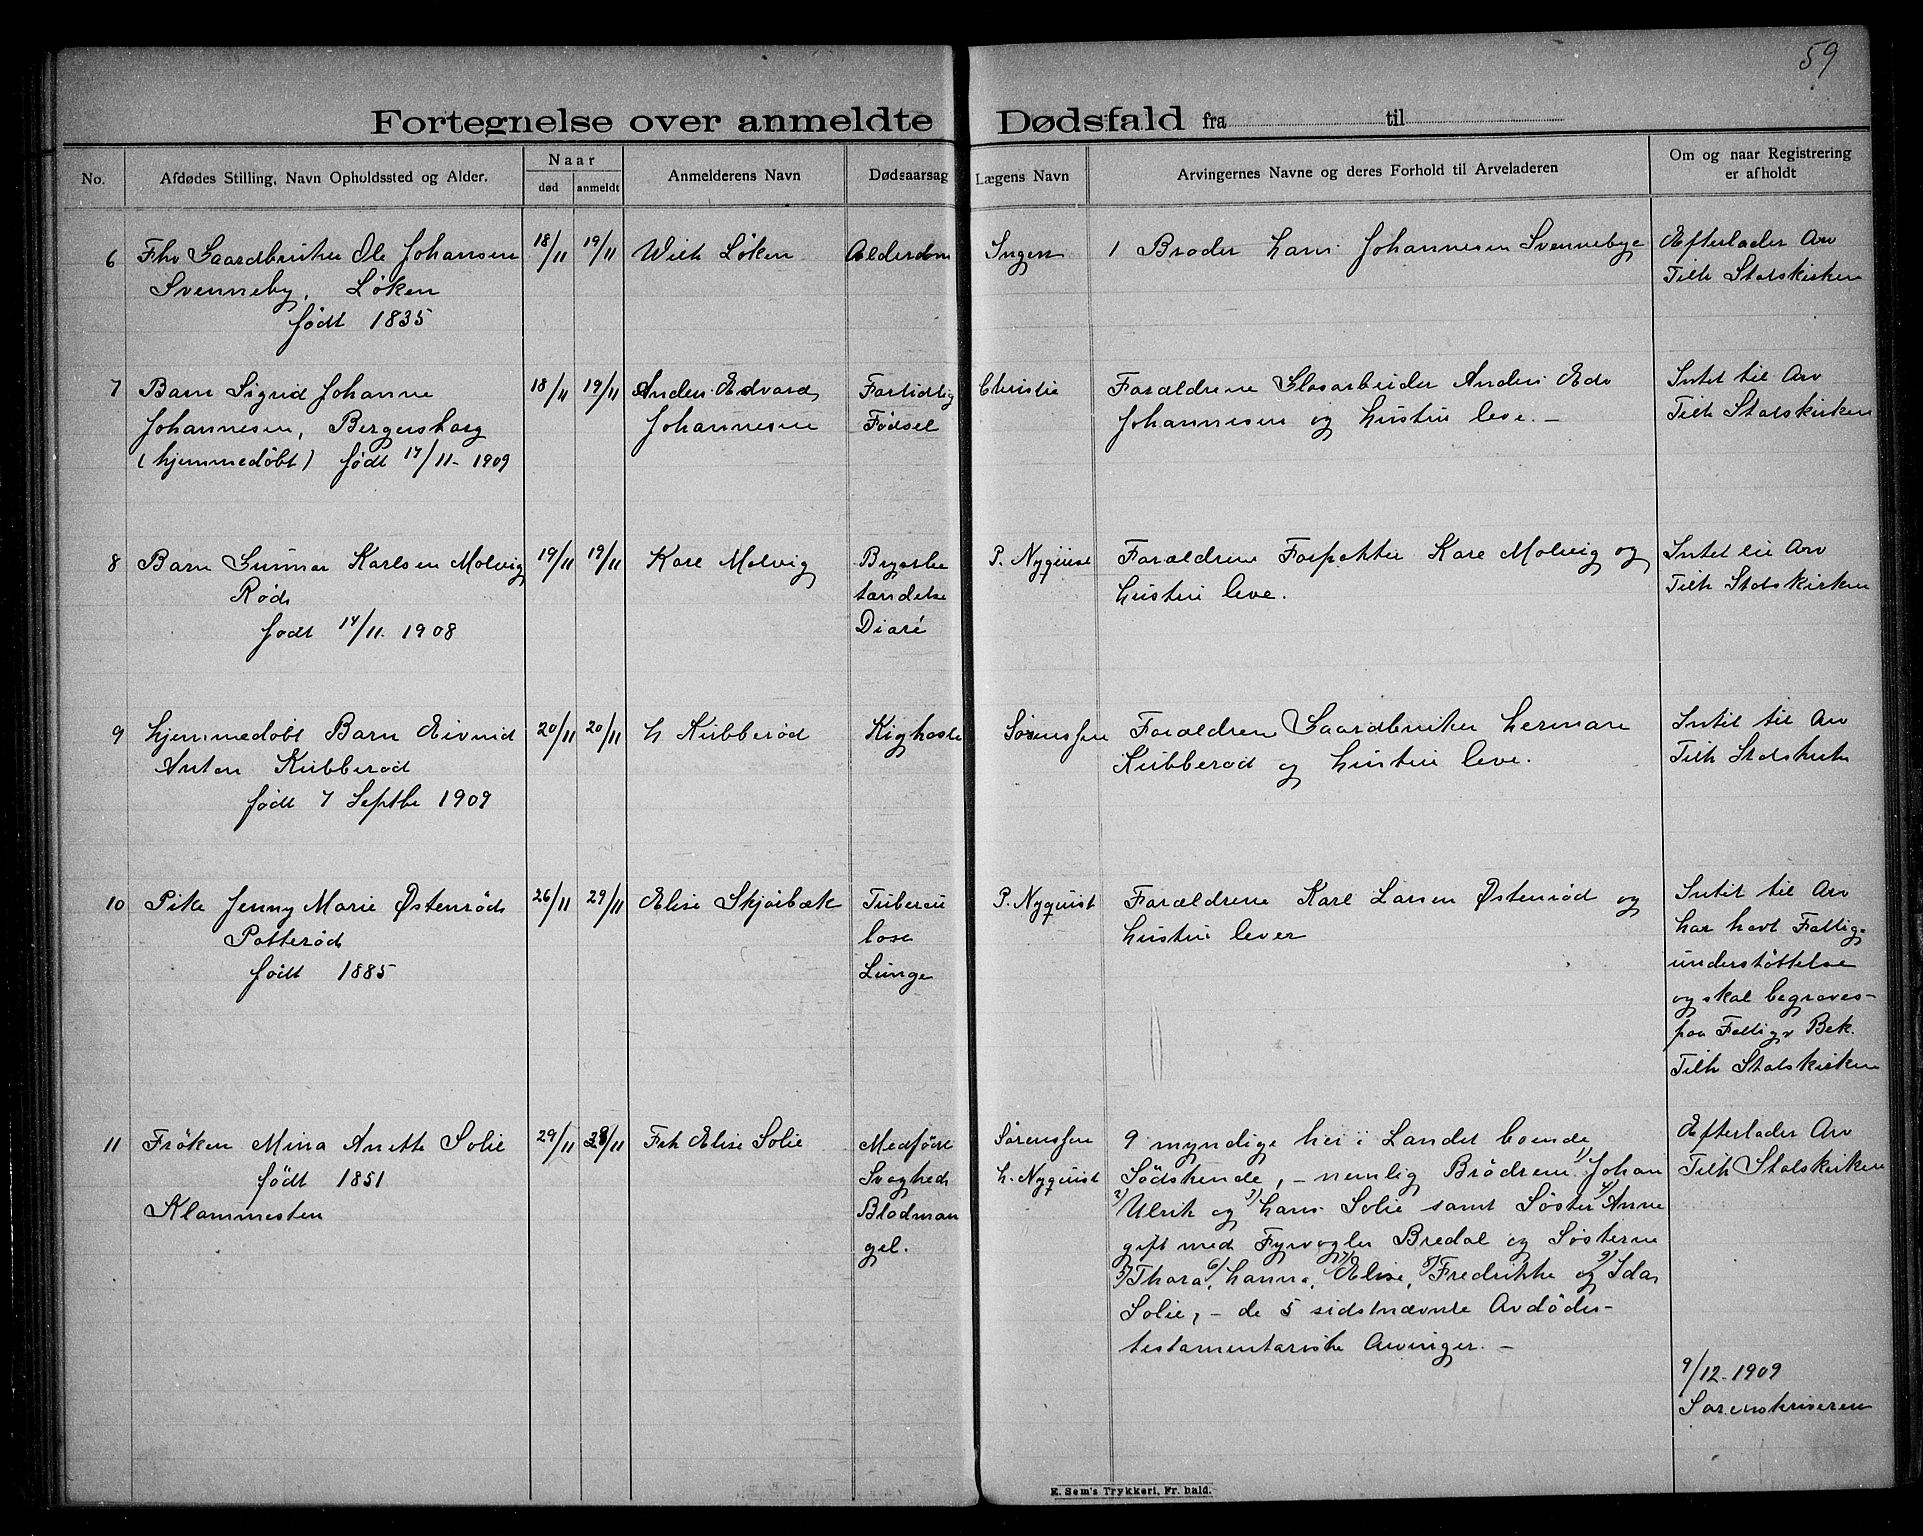 59
Fortegnelse over anmeldte Dødsfald fra til
No.
Afdødes Stilling, Navn Opholdssted og Alder.
Naar
død
anmeldt
Anmelderens Navn
Dødsaarsag
Lægens Navn
Arvingernes Navne og deres Forhold til Arveladeren
Om og naar Registrering
er afholdt
6
Fhv Gaardbruker Ole Johansen
Svenneby, Løken
født 1835
18/11
19/11
Wilh Løken
Alderdom
Ingen
1 Broder Hans Johannesen Svennebye
Efterlader Arv
Tilh Statskirken
7
Barn Sigrid Johanne
Johannesen, Bergerskorg
(hjemmedøbt) født 17/11-1909
18/11
19/11
Anders Edvard
Johannesen
Fortidlig
Fødsel
Christie
Forældrene Glasarbeider Anders Edv
Johannesen og Hustru leve. -
Intet til Arv
Tilh Statskirken
8
Barn Gunnar Karlsen Molvig
Røds
født 14/11. 1908
19/11
19/11
Kare Molvig
Brystbe
tændelse
Diaré
P. Nyquist
Forældrene Forpakter Kare Molvig og
Hustru leve.
Intet til Arv
Tilh Statskirken
9
Hjemmedøbt Barn Eivind
Anton Kubberød
født 7 Septbr 1909
20/11
20/11
H Kubberød
Kighoste
Sørenssen
Forældrene Gaardbruker Herman
Kubberød og Hustru leve.
Intet til Arv
Tilh Statskirke
10
Pike Jenny Marie Østenrød
Potterød
født 1885
26/11
29/11
Elise Skjolbæk
Tubercu
lose
Lunge
P. Nyquist
Forældrene Karl Larsen Østenrød og
Hustru lever
Intet til Arv
har havt Fattig-
understøttelse
og skal begraves-
paa Fattigv Bek.
Tilh Statskirken
11
Frøken Mina Anette Solie
født 1851
Klommesten
29/11
28/11
Frk Elise Solie
Medført
Svaghed
Blodman
gel.
Sørenssen
H. Nyquist
9 myndige her i Landet boende
Sødskende, - nemlig Brødrene 1/ Johan
2/ Ulrik og 3/ Hans Solie samt Søster 4/ Anne
gift med Fyrvogter Bredal og Søsterne
5/ Thora, 6/ Hanna, 7/ Elise, 8/ Fredrikke og 9/ Ida
Solie, - de 5 sidstnævnte Avdødes-
testamentariske Arvinger. -
Efterlader Arv
Tilh Statskirken
9/12-1909
Sorenskriveren
E. Sem's Trykkeri, Fr.hald.